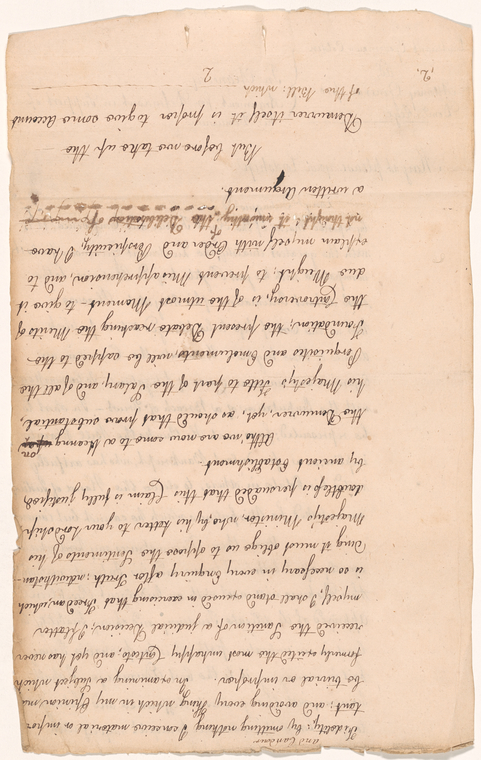 and candour
Fidelity; by; omitting nothing I conceive material or impor-
tant; and avoiding every thing which in my Opinion, may
be trivial or improper. In examining a Subject which
formerly excited the most unhappy Contests, and, yet never
received the Sanction of a judicial Decision; I flatter
myself, I shall stand excused in exercising that Freedom, which
is so necessary in every Enquiry after Truth: notwithstan-
ding it must oblige us to oppose the Sentiments of his
Majesty's Minister, who, by his Letter to your Lordship
doubtless is persuaded that this Claim is fully justified,
by ancient Establishment
Altho' we are now come to a Hearing on
the Demurrer, yet, as should that prove substantial,
his Majesty's Title to part of the Salary, and, of all the
Perquisites and Emoluments will be sapped to the
Foundation; the present Debate reaching the Merits of
the Controversy, is of the utmost Moment - to give it
due Weight; to prevent Misapprehension, and, to
explain myself with Order and Perspicuity, I have
not thought it unworthy of the
a written Argument.
But before we take up the
Demurrer itself it is proper to give some Account
of the Bill: which
2
2.